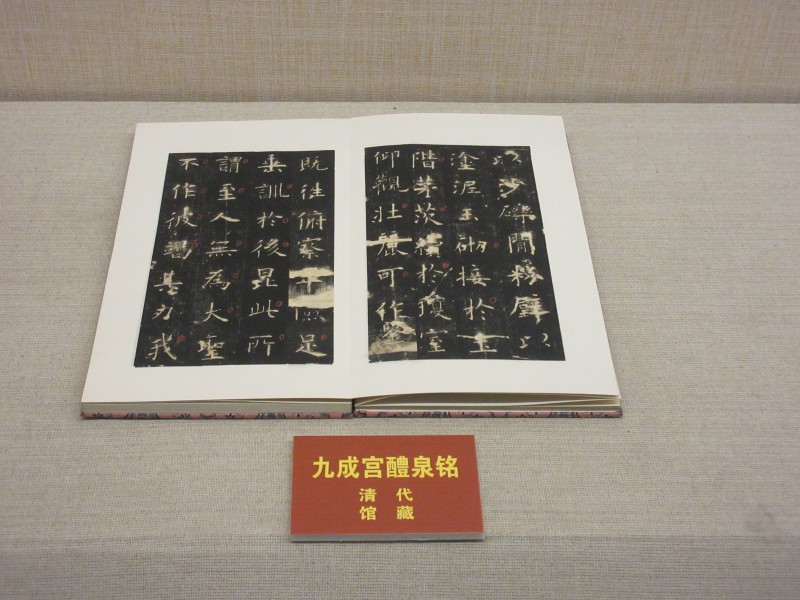 以沙礫間粉壁以
塗泥玉砌接於土
階茅茨續於瓊室
仰觀壯麗可作鑒
既往俯察足
垂訓於後昆此所
謂至人無為大聖
不作彼竭其力我
九成宫醴泉铭
清代
馆藏